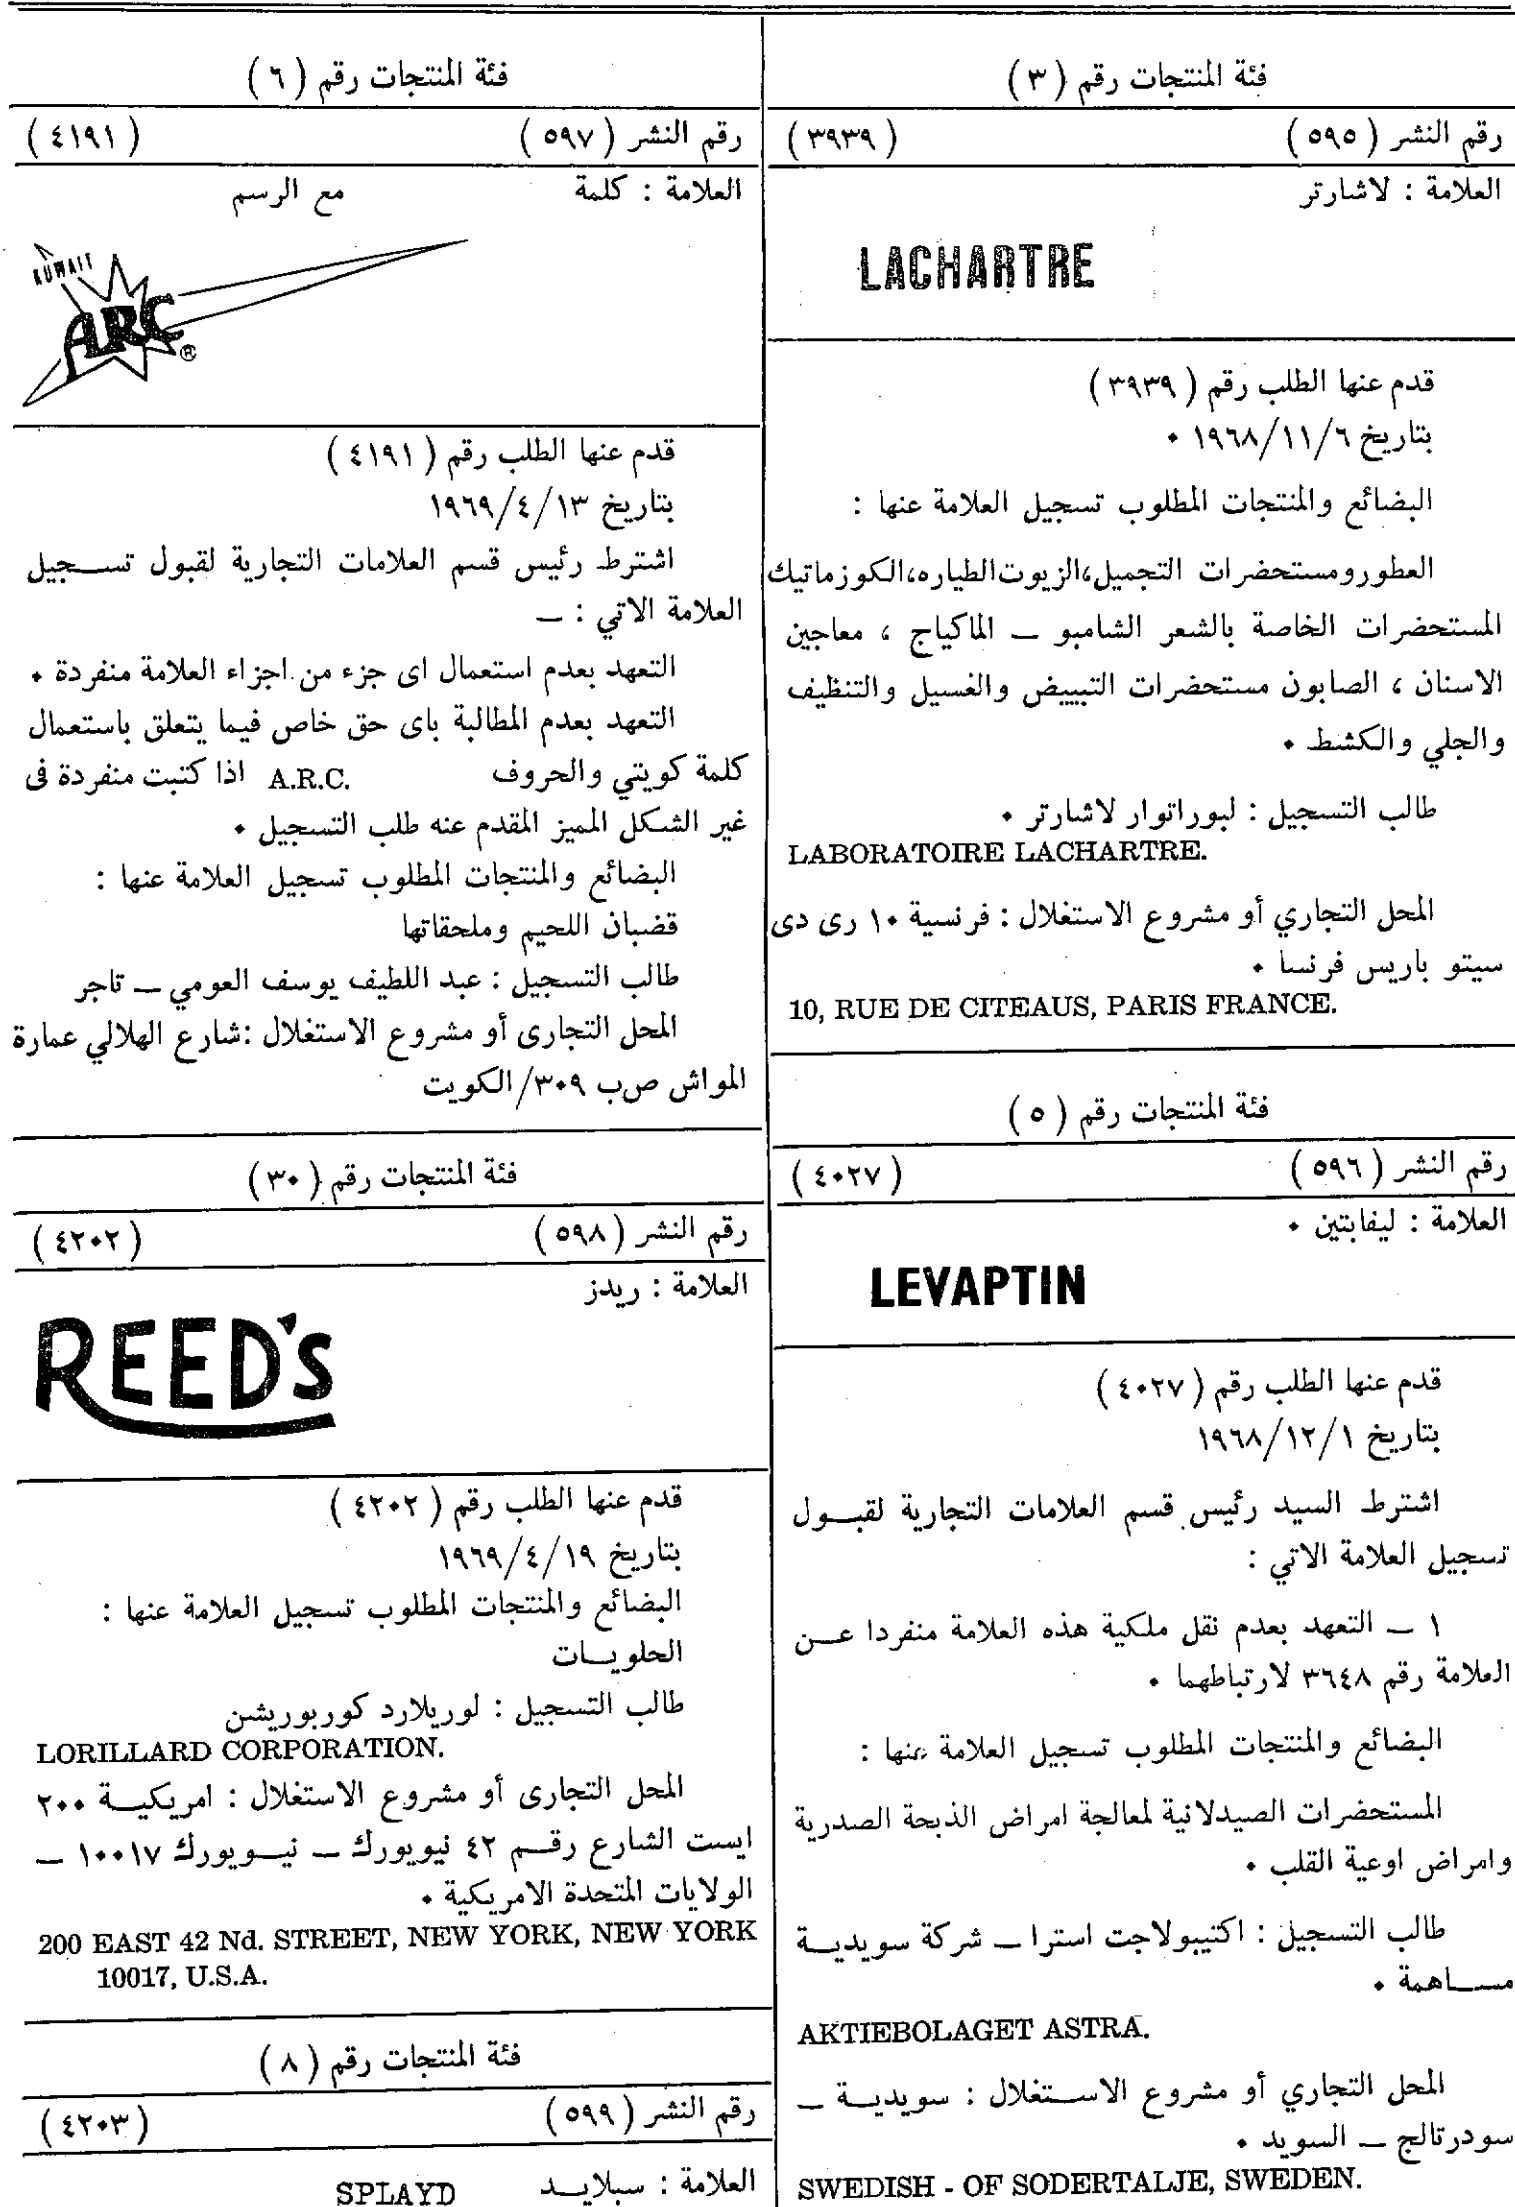 فئة المنتجات رقم ( ٣ )
رقم النشر ( ٥٩٥ ) ( ٣٩٣٩ )
العلامة : لاشارتر
LACHARTRE
قدم عنها الطلب رقم ( ٣٩٣٩ )
بتاريخ ١٩٦٨/١١/٦ ٠
البضائع والمنتجات المطلوب تسجيل العلامة عنها :
العطورومستحضرات التجميل،الزيوتالطياره،الكوزماتيك
المستحضرات الخاصة بالشعر الشامبو ــ الماكياج ، معاجين
الاسنان ، الصابون مستحضرات التبييض والغسيل والتنظيف
والجلي والكشط ٠
طالب التسجيل : لبوراتوار لاشارتر ٠
LABORATOIRE LACHARTRE.
المحل التجاري أو مشروع الاستغلال : فرنسية ١٠ رى دى
سيتو باريس فرنسا ٠
10, RUE DE CITEAUS, PARIS FRANCE.
فئة المنتجات رقم ( ٥ )
رقم النشر ( ٥٩٦ ) ( ٤٠٢٧ )
العلامة : ليفابتين ٠
LEVAPTIN
قدم عنها الطلب رقم ( ٤٠٢٧ )
بتاريخ ١٩٦٨/١٢/١
اشترط السيد رئيس قسم العلامات التجارية لقبــول
تسجيل العلامة الاتي :
١ ــ التعهد بعدم نقل ملكية هذه العلامة منفردا عــن
العلامة رقم ٣٦٤٨ لارتباطهما ٠
البضائع والمنتجات المطلوب تسجيل العلامة عنها :
المستحضرات الصيدلانية لمعالجة امراض الذبحة الصدرية
وامراض اوعية القلب ٠
طالب التسجيل : اكتيبولاجت استرا ــ شركة سويديــة
مســاهمة ٠
AKTIEBOLAGET ASTRA.
المحل التجاري أو مشروع الاســتغلال : سويديــة ــ
سودرتالج ــ السويد ٠
SWEDISH - OF SODERTALJE, SWEDEN.
فئة المنتجات رقم ( ٦ )
رقم النشر ( ٥٩٧ ) ( ٤١٩١ )
العلامة : كلمة مع الرسم
KUWAIT
ARC ®
قدم عنها الطلب رقم ( ٤١٩١ )
بتاريخ ١٩٦٩/٤/١٣
اشترط رئيس قسم العلامات التجارية لقبول تســجيل
العلامة الاتي : ــ
التعهد بعدم استعمال اى جزء من اجزاء العلامة منفردة ٠
التعهد بعدم المطالبة باى حق خاص فيما يتعلق باستعمال
كلمة كويتي والحروف A.R.C. اذا كتبت منفردة فى
غير الشكل المميز المقدم عنه طلب التسجيل ٠
البضائع والمنتجات المطلوب تسجيل العلامة عنها :
قضبان اللحيم وملحقاتها
طالب التسجيل : عبد اللطيف يوسف العومي ــ تاجر
المحل التجارى أو مشروع الاستغلال :شارع الهلالي عمارة
المواش ص٠ب ٣٠٩/الكويت
فئة المنتجات رقم ( ٣٠ )
رقم النشر ( ٥٩٨ ) ( ٤٢٠٢ )
العلامة : ريدز
REED's
قدم عنها الطلب رقم ( ٤٢٠٢ )
بتاريخ ١٩٦٩/٤/١٩
البضائع والمنتجات المطلوب تسجيل العلامة عنها :
الحلويــات
طالب التسجيل : لوريلارد كوربوريشن
LORILLARD CORPORATION.
المحل التجارى أو مشروع الاستغلال : امريكيــة ٢٠٠
ايست الشارع رقــم ٤٢ نيويورك ــ نيــويورك ١٠٠١٧ ــ
الولايات المتحدة الامريكية ٠
200 EAST 42 Nd. STREET, NEW YORK, NEW YORK
10017, U.S.A.
فئة المنتجات رقم ( ٨ )
رقم النشر ( ٥٩٩ ) ( ٤٢٠٣ )
العلامة : سبلايــد SPLAYD